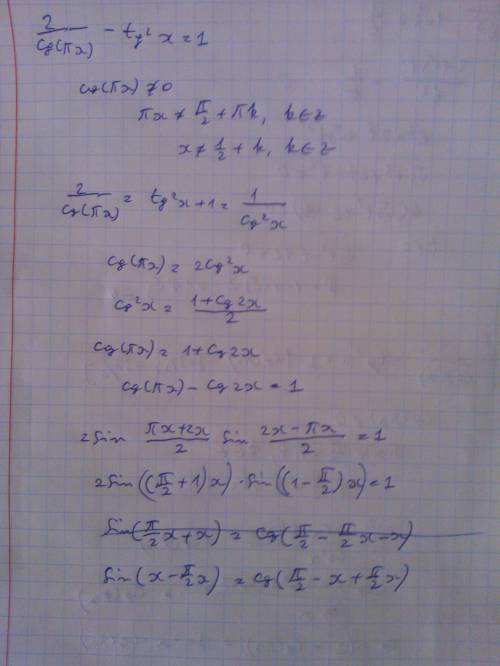 2/cos(πx) - tg² x = 1
cos(πx) ≠ 0
πx ≠ π/2 + πk, k∈z
x ≠ 1/2 + k, k∈z
2/cos(πx) = tg²x+1 = 1/cos²x
cos(πx) = 2cos²x
cos²x = (1+cos2x)/2
cos(πx) = 1+cos2x
cos(πx) - cos2x = 1
2sin (πx+2x)/2 sin (2x-πx)/2 = 1
2sin((π/2+1)x)·sin((1-π/2)x)=1
sin(π/2x+x) = cos(π/2 - π/2x-x)
sin(x-π/2x) = cos(π/2 - x + π/2x)